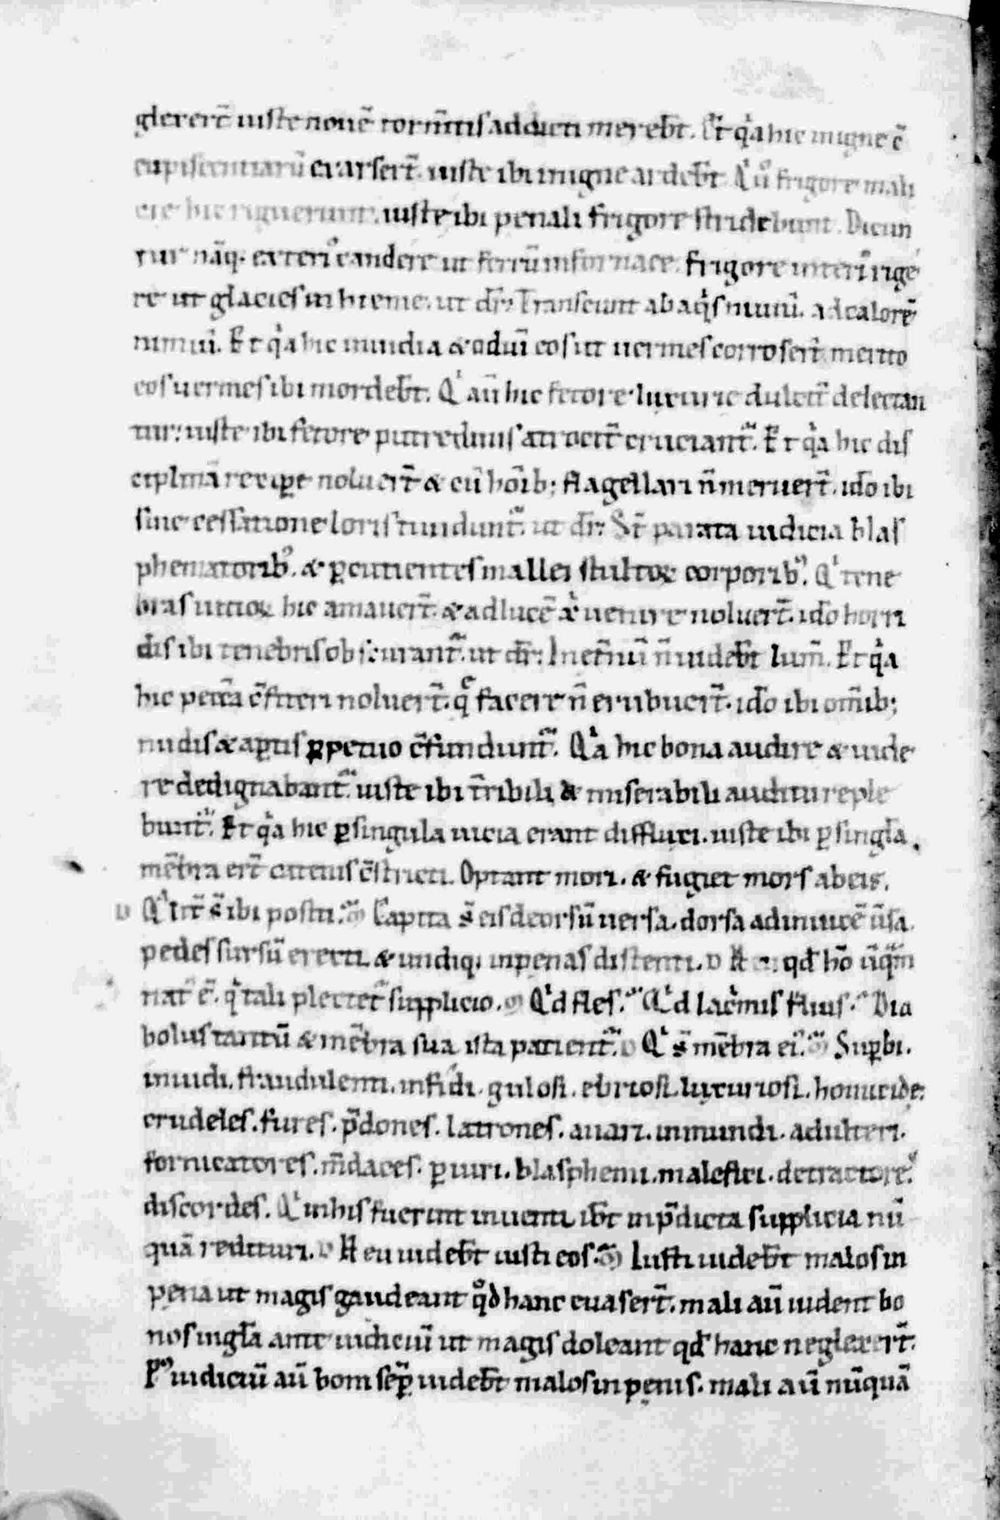 glexert̄ iuste nouē torm̄tis addicti merebt̄. Et q̇a hic in igne ē
cupiscentiarū exarsert̄. iuste ibi in igne ardebt̄. Q̇ u̇ frigore mali
cie hic riguerunt. iuste ibi penali frigore stridebunt. Dicun
tur nāq; exteri᷒ candere ut ferrū in fornace. frigore interi᷒ rige
re ut glacies in hieme. ut dr̄. Transeunt ab aq̇s niuiū. ad calorē
nimiū. Et q̇a hic inuidia & odiū eos ut uermes corrosert̄. merito
eos uermes ibi mordebt̄. Q̇ aū hic fetore luxurie dulcit̄ delectan
tur: iuste ibi fetore putredinis atrocit̄ cruciant᷒. Et q̇a hic dis
ciplinā recipe noluert̄ & cū hōib; flagellari n̄ meruert̄. ido ibi
sine cessatione loris tundunt᷒. ut dr̄. St̄ parata iudicia blas
phematorib᷒. & ꝑcutientes mallei stultoꝝ corporib᷒. Q̇ tene
bras uicioꝝ hic amauert̄. & ad lucē xp̄i uenire noluert̄. ido horri
dis ibi tenebris obscurant᷒. ut dr̄. In et̄nū n̄ uidebt̄ lum̄. Et q̇a
hic peccā c̄fiteri noluert̄. q̄ facere n̄ erubuert̄. ido ibi om̄ib;
nudis & aꝑtis ꝑpetuo c̄fundunt᷒. Q̇a hic bona audire & uide
re dedignabant᷒. iuste ibi tr̄ribili & miserabili auditu reple
bunt᷒. Et q̇a hic ꝑ singula uicia erant diffluxi. iuste ibi ꝑ singl̄a
mēbra ert̄ catenis c̄stricti. Optant mori. & fugiet mors ab eis.
D Qi̇t̄ s̄ ibi positi. M̄ Capita s̄ eis deorsū uersa. dorsa adinuicē ūsa.
pedes sursū erecti. & undiq; in penas distenti. D Heu. qd̄ hō ūq̄m
nat᷒ ē. q̇ tali plectet᷒ supplicio. M Q̇d fles. Q̇d lac̄mis fluis. Dia
bolus tantū & mēbra sua ista patient᷒. D Q̇ s̄ mēbra ei᷒. M̄ Suꝑbi.
inuidi. fraudulenti. infidi. gulosi. ebriosi. luxuriosi. homicide.
crudeles. fures. p̄dones. latrones. auari. inmundi. adulteri.
fornicatores. m̄daces. ꝑiuri. blasphemi. malefici. detractores.
discordes. Q̇ in his fuerint inuenti. ibt̄ in p̄dicta supplicia nū
quā redituri. D Heu uidebt̄ iusti eos. M̄ Iusti uidebt̄ malos in
pena ut magis gaudeant qd̄ hanc euasert̄. mali aū uident bo
nos in gl̄a ante iudiciū ut magis doleant qd̄ hanc neglexert̄.
P᷒ iudiciū aū boni semꝑ uidebt̄ malos in penis. mali aū nūquā